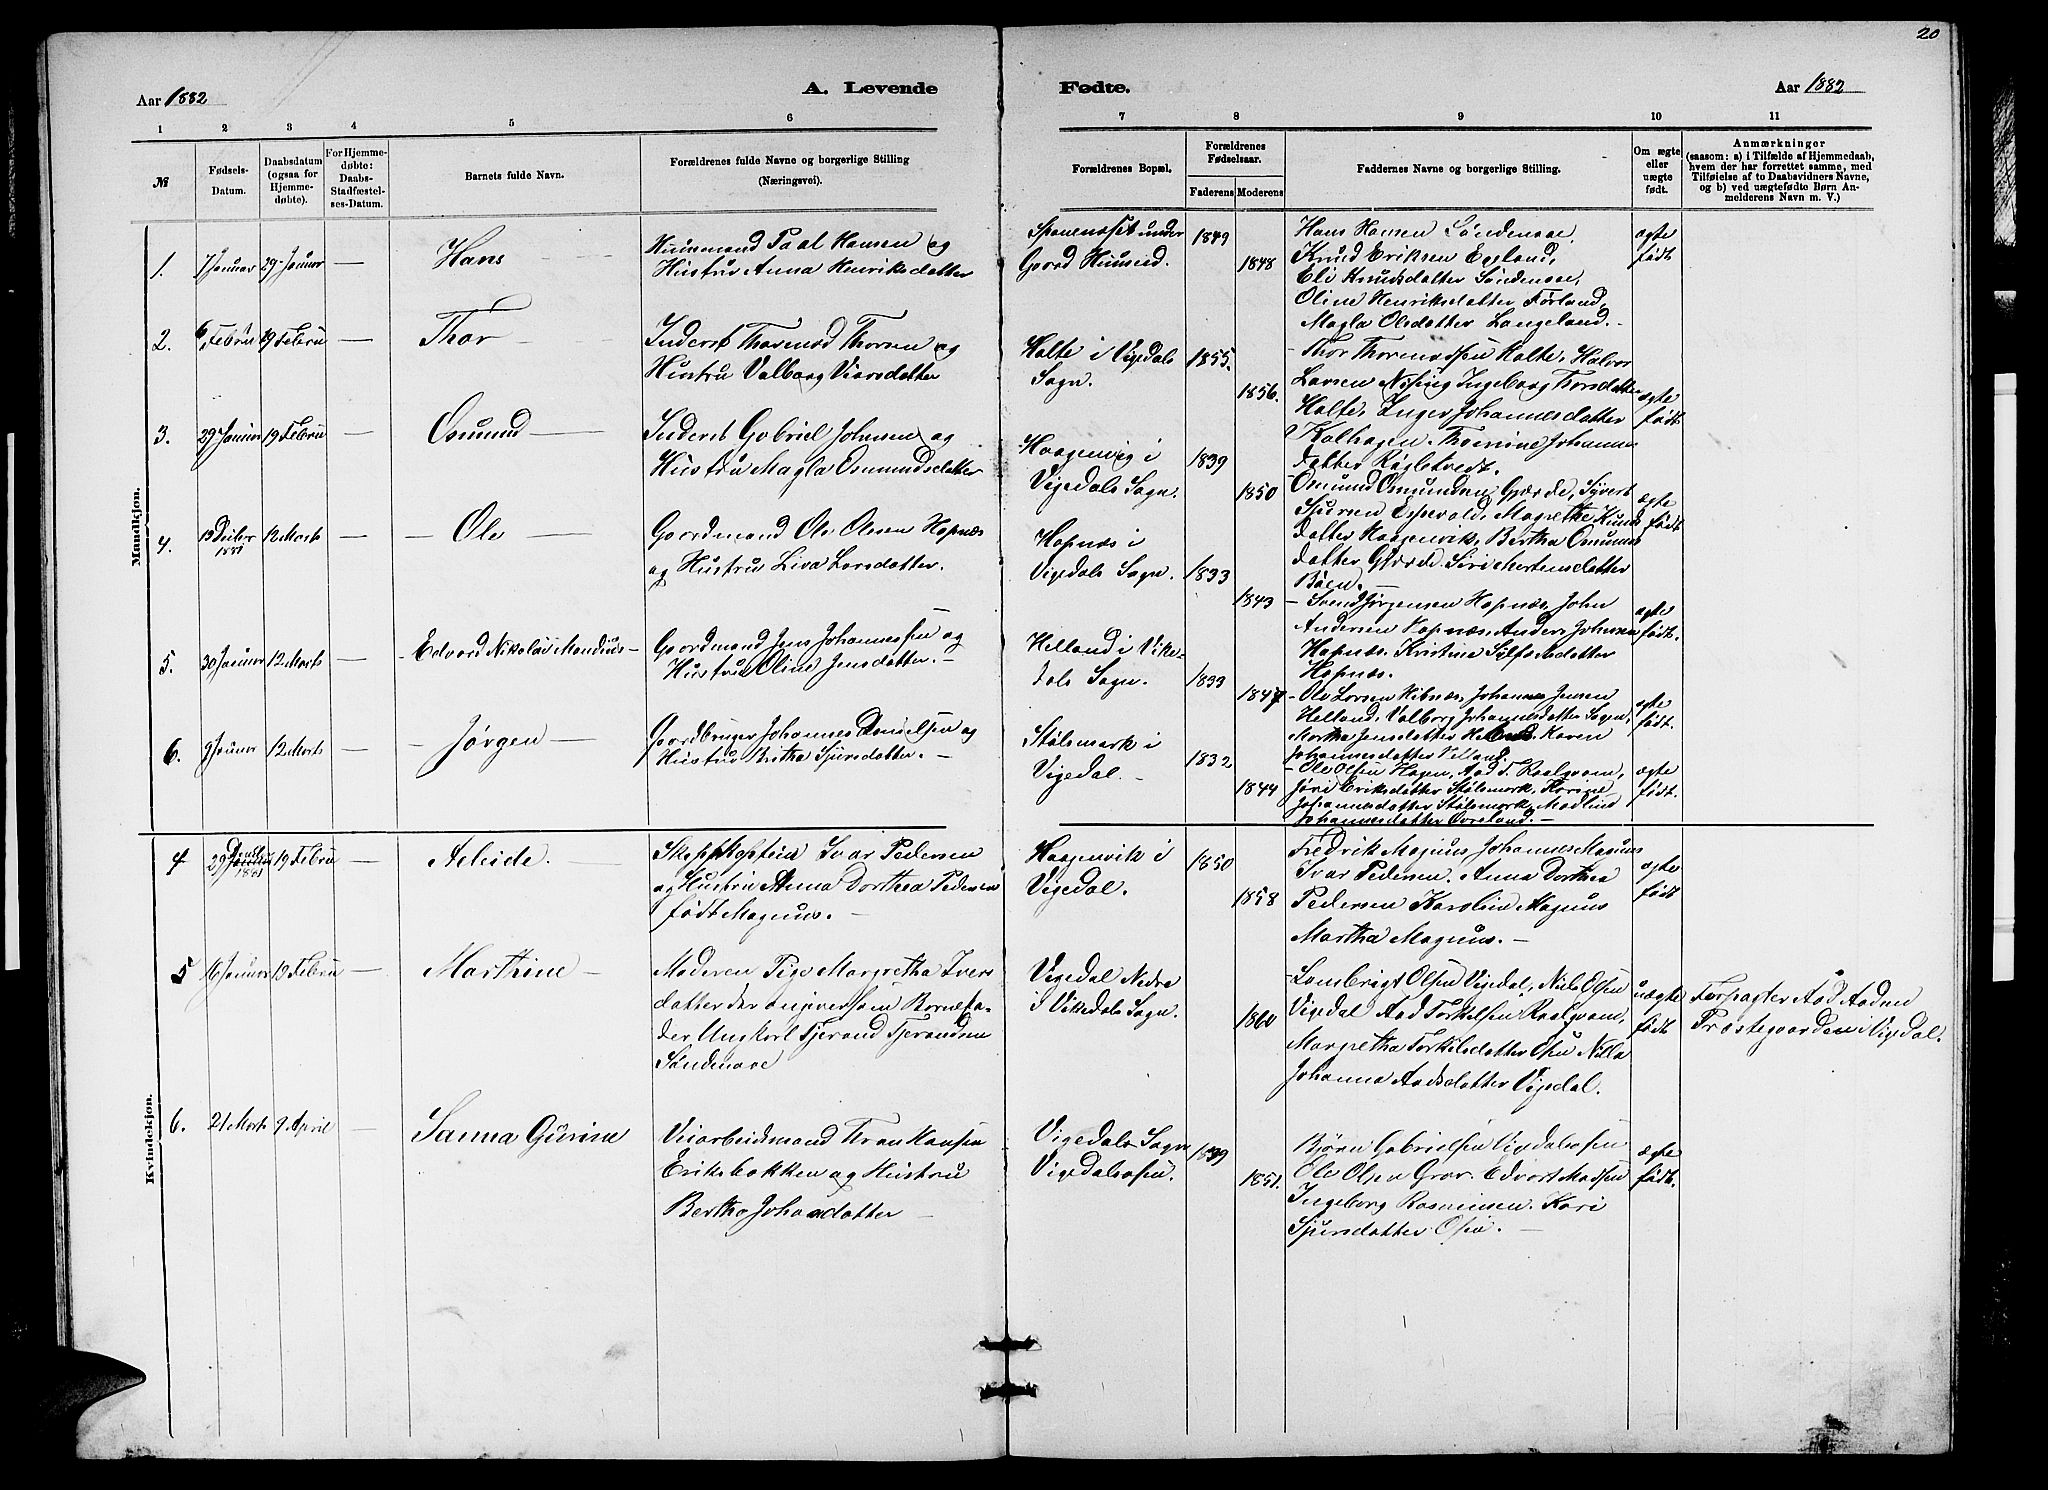 20
Aar 1882
A. Levende
Fødte.
Aar 1882
1 2 3 4 5 6 7 8 9 10 11
№
Fødsels-
Datum.
Daabsdatum
(ogsaa for
Hjemme-
døbte).
For Hjemme-
døbte:
Daabs-
Stadfæstel-
ses-Datum.
Barnets fulde Navn.
Forældrenes fulde Navne og borgerlige Stilling
(Næringsvei).
Forældrenes Bopæl.
Forældrenes
Fødselsaar.
Faderens Moderens
Faddernes Navne og borgerlige Stilling.
Om ægte
eller
uægte
født.
Anmærkninger
(saasom: a) i Tilfælde af Hjemmedaab,
hvem der har forrettet samme, med
Tilføielse af to Daabsvidners Navne,
og b) ved uægtefødte Børn An-
melderens Navn m. V.)
Mandkjøn.
1. 7 Januar 29 Januar — Hans
Huusmand Paal Hansen og
Hustru Anna Henriksdatter
Gaard Huuseid.
1849
1848
Hans Hansen Søndenaae,
Knud Eriksen Egeland,
Eli Knudsdatter Søndenaae,
Oline Henriksdatter Førland,
Magla Olsdatter Langeland. —
ægte
født
2. 6 Febru 19 Febru — Thor
Inderst Thormod Thorsen og
Hustru Valborg Viarsdatter
Halte i Vigedals
Sogn.
1855.
1856.
Thor Thormodsen Halte, Halvor
Larsen Ingeborg Torsdatter
Halte, Inger Johannesdatter
Kalhagen. Thomine Johannes
datter
ægte
født
3. 29 Januar 19 Febru — Osmund —
Inderst Gabriel Johnsen og
Hustru Magla Osmundsdatter
Haapevig i
Vigedals Sogn.
1839
1850
Osmund Osmundsen Gjærde, Syvert
Sjursen Espevold, Magrethe Knuds
datter Haapevik, Bertha Osmunds
datter Gjærde, Siri Mortensdatter
Bøen. —
ægte
født
4. 13 Decbr 1881 12 Marts — Ole —
Gaardmand Ole Olsen Hapnæs
og Hustru Liva Larsdatter.
Hapnæs i
Vigedals Sogn.
1833
1843
— Svend Jørgensen Hapnæs, John
Andersen Hapnæs, Anders Johnsen
Hapnæs. Kristina datter
Hapnæs.
ægte
født.
5. 30 Januar 12 Marts — Edvard Nikolai Mandius —
Gaardmand Jens Johannessen og
Hustru Oline Jensdatter. —
Helland i Vike-
dals Sogn.
1833
1847
— Ole Larsen Hibnæs, Johannes Jensen
Helland, Valborg Johannesdatter Sogn,
Martha Jensdatter Helland. Karen
Johannesdatter Helland.
ægte
født.
6. 9 Januar 12 Marts — Jørgen —
Gaardbruger Johannes Danielsen og
Hustru Britha Sjursdatter. —
Stølsmark i
Vigedal. —
1832
1844
— Ole Olsen Hagen, Aad T. Raalqvam,
Jøri Eriksdatter Stølsmark, Karine
Johannesdatter Stølsmark, Madline
Johannesdatter Øvreland. —
ægte
født.
Kvindekjøn.
4 29 1881 19 Febru — Aleide.
Skibskaptein Ivar Pedersen
og Hustru Anna Dorthea Pedersen
født Magnus. —
Haapevik i
Vigedal.
1850
1858
Fredrik Magnus, Johannes Magnus
Ivar Pedersen. Anna Dorthea
Pedersen Karoline Magnus
Martha Magnus. —
ægte
født
5 16 Januar 19 Febru — Marthine —
Moderen Pige Margretha Ivers
datter der angiver som Barnefa-
der Ungkarl Tjerand Tjerandsen
Søndenaae
Vigedal Nedre
i Vikedals Sogn.
1860
— Lensbrigt Olsen Vigedal, Nils Olsen
Vigedal Aad Torkelsen Raalqvam,
Margretha Torkilsdatter Osen Nilla
Johanna Aadsdatter Vigedal.
uægte
født
Forpagter Aad Aadsen
Præstegaarden i Vigedal.
6. 21 Marts 9 April Sanna Gurine
Veiarbeidsmand Hans Hansen
Eriksbakken og Hustru
Bertha Johansdatter —
Vigedals Sogn
Vigedalsosen.
1839
1851.
Bjørn Gabrielsen Vigedalsosen
Ole Olsen Grov. Edvart Madsen
Ingeborg Rasmussen. Kari
Sjursdatter Osen. —
ægte
født.